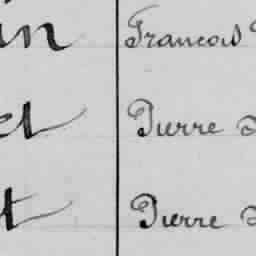 in François
et Pierre
t Pierre